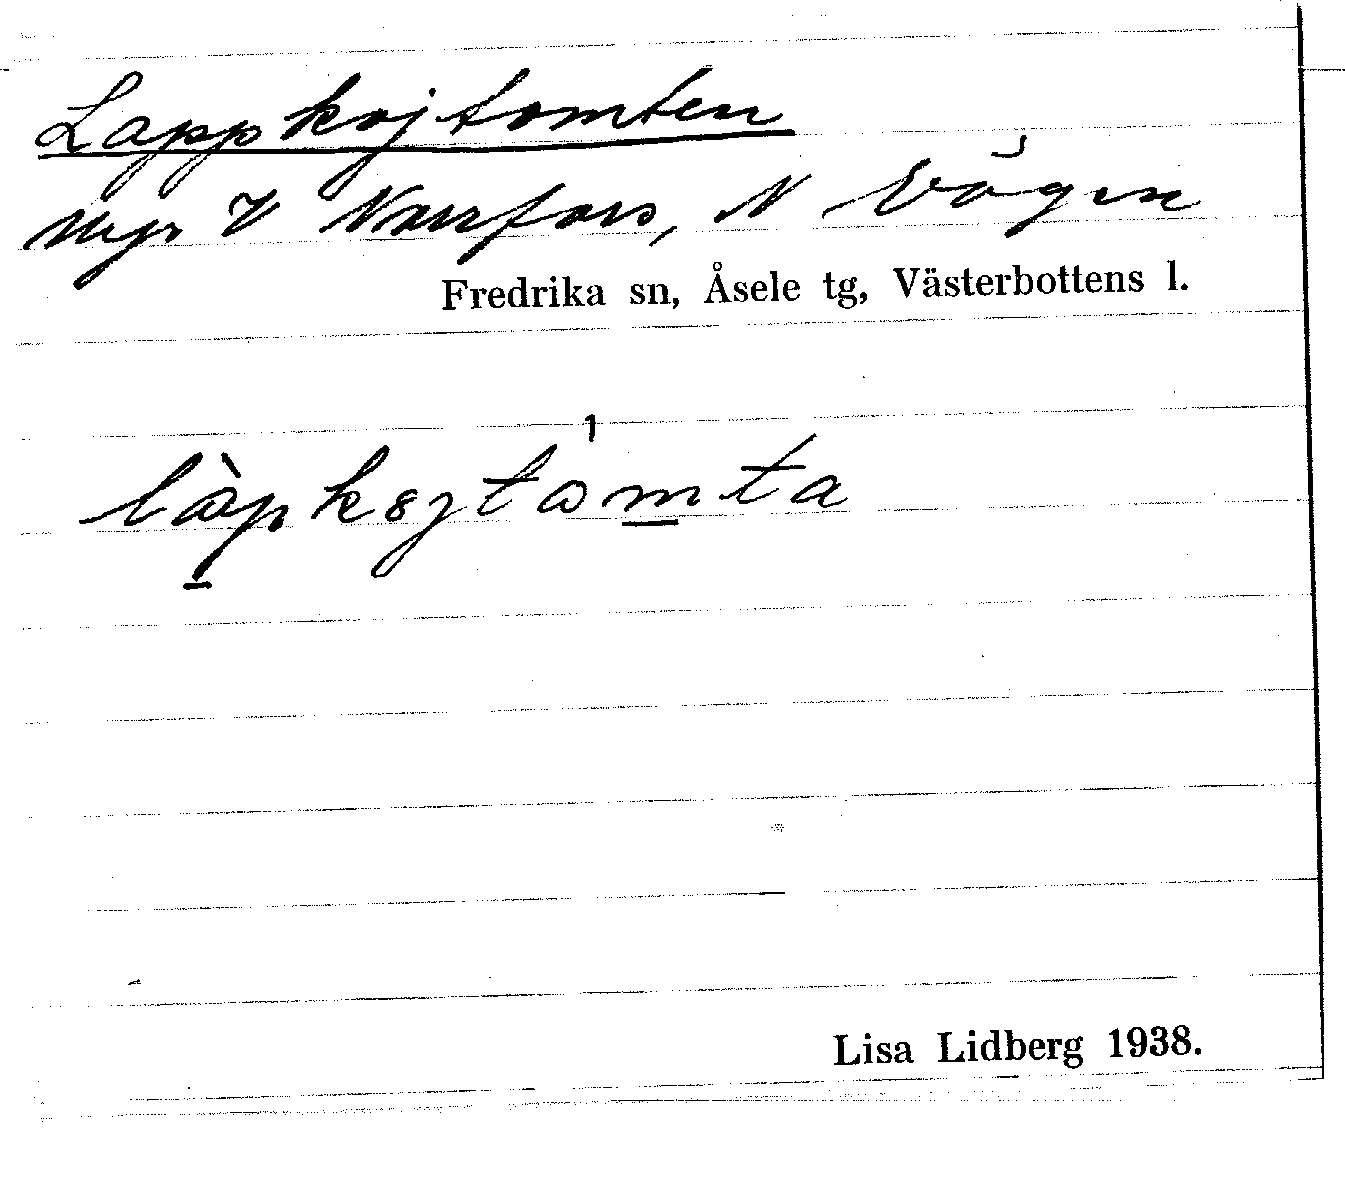 Lappkojtomten
Myr V Norrfors, N Vägen
Fredrika sn, Åsele tg, Västerbottens l.
làpkȣjtómta
Lisa Lidberg 1938.